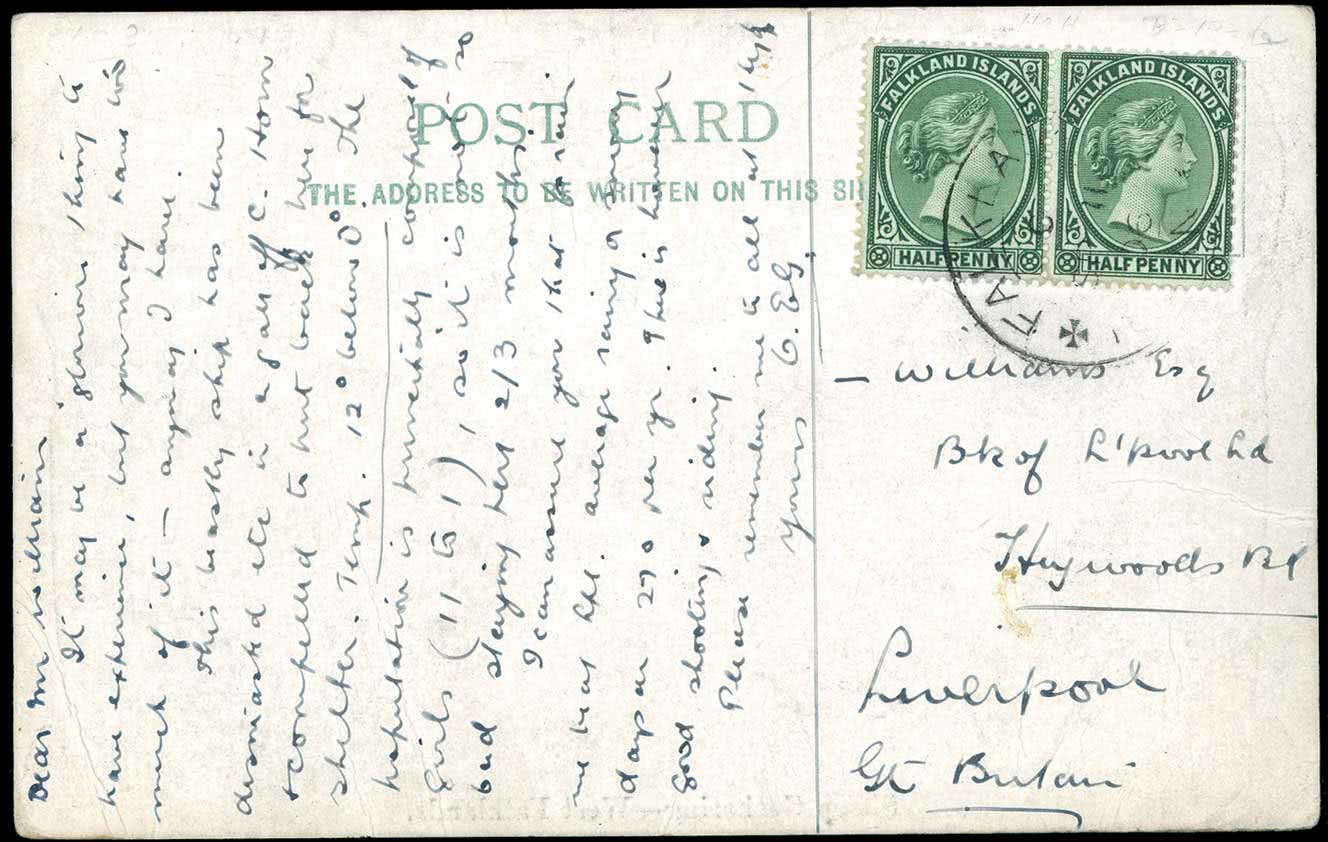 POST CARD
THE ADDRESS TO BE WRITTEN ON THIS SI
FALKLAND ISLANDS
HALFPENNY
FALKLAND ISLANDS
HALFPENNY
FALKLA
Dear Mr Williams
It may be a glorious thing to
have experience, but you may have too
much of it — anyway I have.
This beastly ship has been
dismasted etc in a gale off C. Horn
& compelled to put back here for
shelter. Temp. 12° below 0°. The
population is principally composed of
Girls (11 to 1), so it is not so
bad staying here 2/3 months.
I can assure you that for
me beas average rainy & snowy
days are 270 per yr. There is however
good shooting & riding.
Please remember me to all at
yours G. EG.
— Williams Esq
Bk of L'pool Ld
Heywoods Bh
Liverpool
Gt Britain